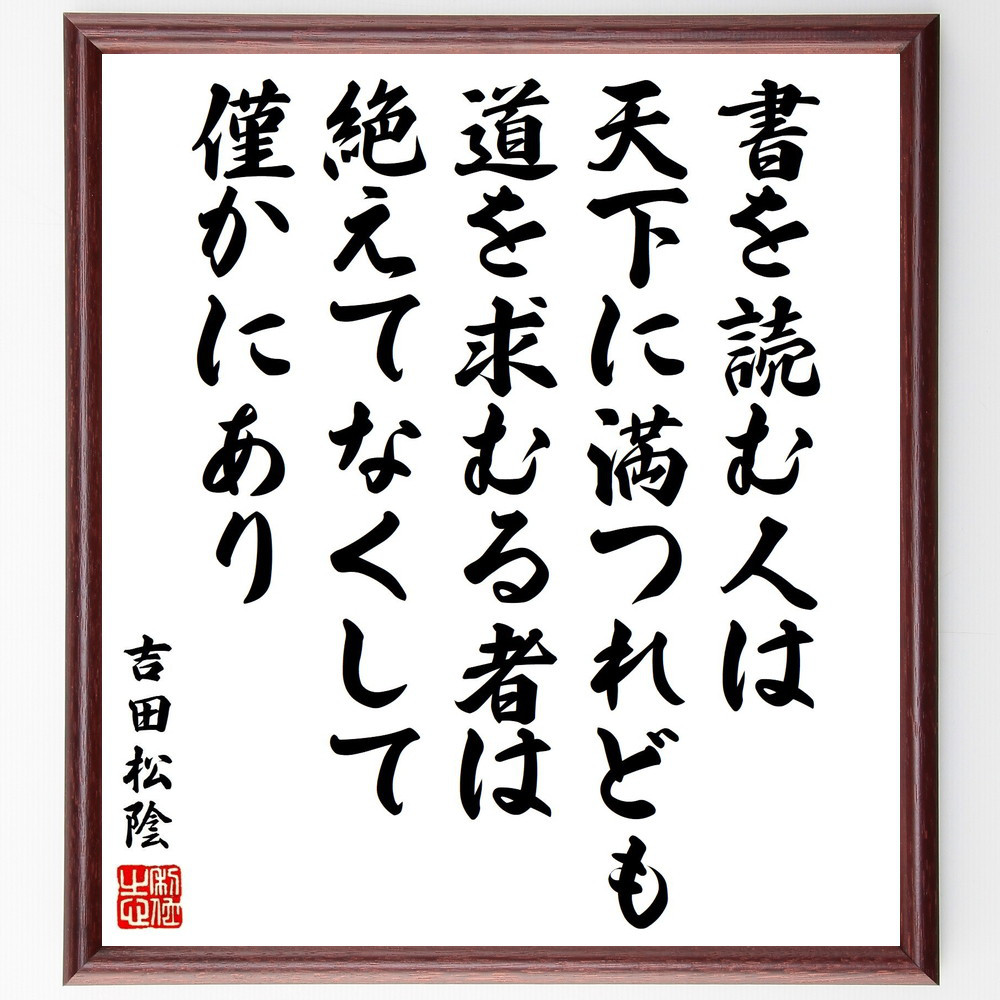 書を読む人は
天下に満つれども
道を求むる者は
絶えてなくして
僅かにあり
吉田松陰